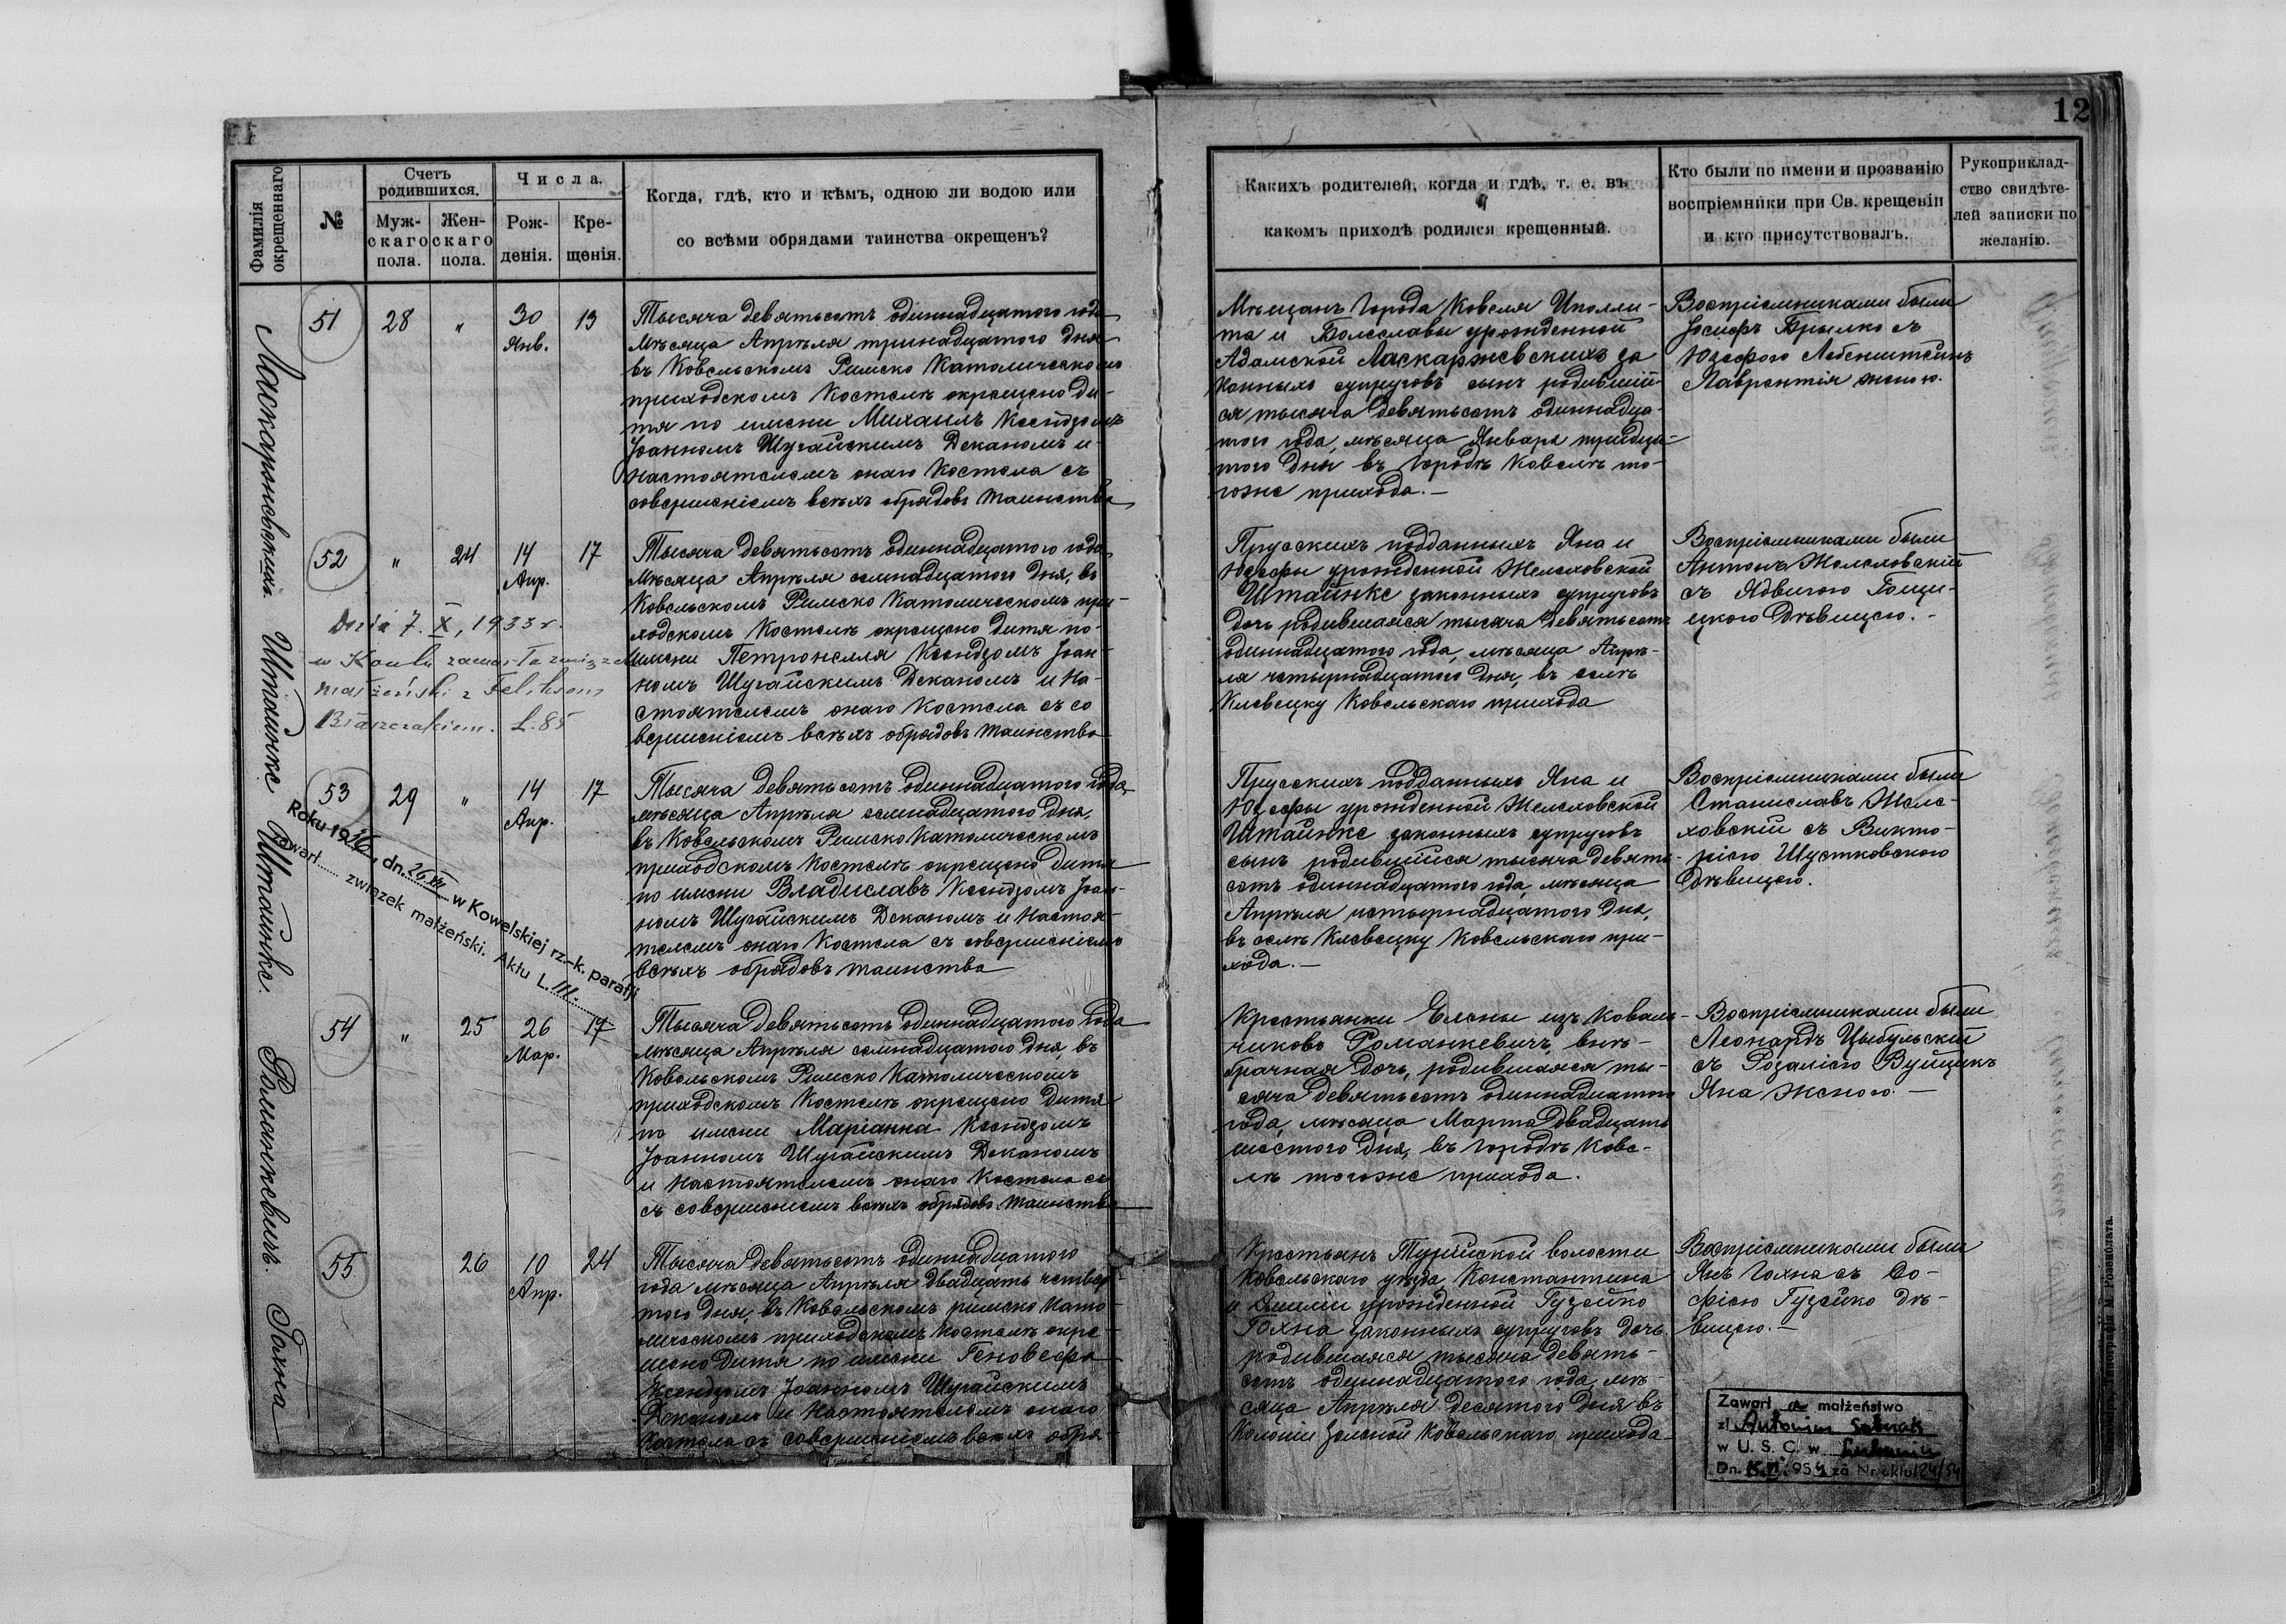 12
Фамилія
окрещеннаго
№
Счетъ
родившихся.
Муж-
скаго
пола.
Жен-
скаго
пола.
Числа.
Рож-
денія.
Кре-
щенія.
Когда, гдѣ, кто и кѣмъ, одною ли водою или
со всѣми обрядами таинства окрещенъ?
Какихъ родителей, когда и гдѣ, т. е. въ
какомъ приходѣ родился крещенный.
Кто были по имени и прозванію
воспріемники при Св. крещеніи
и кто присутствовалъ.
Рукоприклад-
ство свидѣте-
лей записки по
желанію.
51
28
"
30
Янв.
13
Тысяча девятьсотъ одиннадцатого года
мѣсяца Апрѣля тринадцатого дня
въ Ковельскомъ Римско Католическомъ
приходскомъ Костелѣ окрещено ди-
тя по имени Михаилъ Ксендзомъ
Іоанномъ Шугайскимъ Деканомъ и
Настоятелемъ онаго Костела съ
совершеніемъ всѣхъ обрядовъ таинства
Мѣщанъ Города Ковеля Иполли-
та и Болеславы урожденной
Адамской Ласкаржевскихъ за
конныхъ супруговъ сынъ родившій-
ся тысяча девятьсотъ одиннадца-
того года, мѣсяца Января тридца-
того дня въ Городѣ Ковелѣ то-
гоже прихода.-
Воспріемниками были
Іосифъ Брылко съ
Юзефою
Лаврентія женою.
52
"
24
14
Апр.
17
Тысяча девятьсотъ одиннадцатого года
мѣсяца Апрѣля семнадцатого дня, въ
Ковельскомъ Римско Католическомъ при-
ходскомъ Костелѣ окрещено дитя по
имени Петронелля Ксендзомъ Іоан-
номъ Шугайскимъ Деканомъ и На-
стоятелемъ онаго Костела съ со
вершеніемъ всѣхъ обрядовъ таинства
Прусскихъ подданныхъ Яна и
Юзефы урожденной Желеховской
Штайнке законныхъ супруговъ
дочь родившаяся тысяча девятьсотъ
одиннадцатого года, мѣсяца Апрѣ-
ля четырнадцатого дня, въ селѣ
Клевецку Ковельскаго прихода
Воспріемниками были
Антонъ Желеховскій
съ Ядвигою Гощи-
цкою дѣвицею.-
Dnia 7. X, 1933 r.
małżeński z Feliksem
Błaszczakiem. L. 85
53
29
"
14
Апр.
17
Тысяча девятьсотъ одиннадцатого года,
мѣсяца Апрѣля семнадцатого дня,
въ Ковельскомъ Римско Католическомъ
приходскомъ Костелѣ окрещено дитя
по имени Владиславъ Ксендзомъ Іоан-
номъ Шугайскимъ Деканомъ и Настоя-
телемъ онаго Костела съ совершеніемъ
всѣхъ обрядовъ таинства
Прусскихъ подданныхъ Яна и
Юзефы урожденной Желеховской
Штайнке законныхъ супруговъ
сынъ родившійся тысяча девять-
сотъ одиннадцатого года, мѣсяца
Апрѣля четырнадцатого дня,
въ селѣ Клевецку Ковельскаго при-
хода.-
Воспріемниками были
Станиславъ Желе-
ховскій съ Викто-
ріею Шустковскою
дѣвицею.
Roku 1936, dn. 26 w Kowelskiej rz.-k. parafji
zawarł związek małżeński. Aktu L. 111.
54
"
25
26
Мар.
17
Тысяча девятьсотъ одиннадцатого года
мѣсяца Апрѣля семнадцатого дня, въ
Ковельскомъ Римско Католическомъ
приходскомъ Костелѣ окрещено дитя
по имени Маріанна Ксендзомъ
Іоанномъ Шугайскимъ Деканомъ
и Настоятелемъ онаго Костела съ
съ совершеніемъ всѣхъ обрядовъ таинства
Крестьянки Елены изъ Коваль-
чиковъ Романкевичъ, внѣ-
брачная дочь, родившаяся ты-
сяча девятьсотъ одиннадцатого
года, мѣсяца Марта двадцать
шестого дня, въ Городѣ Кове-
лѣ тогоже прихода.
Воспріемниками были
Леонардъ Цыбульскій
съ Розаліею Вуйцикъ
Яна женою.-
55
26
10
Апр.
24
Тысяча девятьсотъ одиннадцатого
года мѣсяца Апрѣля двадцать четвер-
того дня, въ Ковельскомъ римско като-
лическомъ приходскомъ Костелѣ окре-
щено дитя по имени Геновефа
Ксендзомъ Іоанномъ Шугайскимъ
Деканомъ и Настоятелемъ онаго
Костела съ совершеніемъ всѣхъ обря-
Крестьянъ Турійской волости
Ковельскаго уѣзда Константина
и Эмиліи урожденной Гузейко
Гохна законныхъ супруговъ дочь
родившаяся тысяча девять-
сотъ одиннадцатого года, мѣ-
сяца Апрѣля десятого дня въ
Колоніи Зеленой Ковельскаго прихода
Воспріемниками были
Янъ Гохна съ Со-
фіею Гузейко дѣ-
вицею.-
Zawarł a małżeństwo
z Antonim
w U. S. C. w
Dn. 1954 za Nr aktu 124/54
Ласкаржевскихъ.
Штайнке
Штайнке.
Романкевичъ
Гохна
Типографія М. Розенблата.